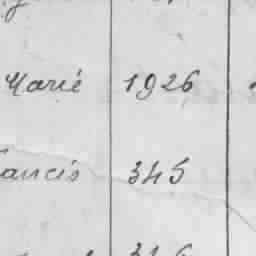 Marié 1926
rancis 345